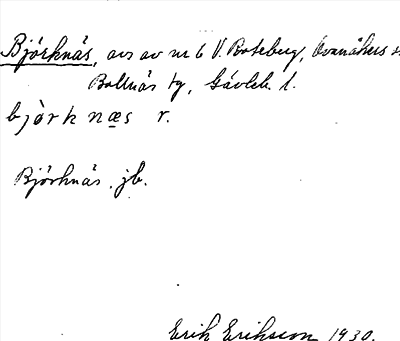 Björknäs, avs av nr 6 V. Roteberg, Ovanåkers s
Bollnäs tg, Gävleb. l.
björk næs r.
Björknäs, jb.
Erik Eriksson 1930.